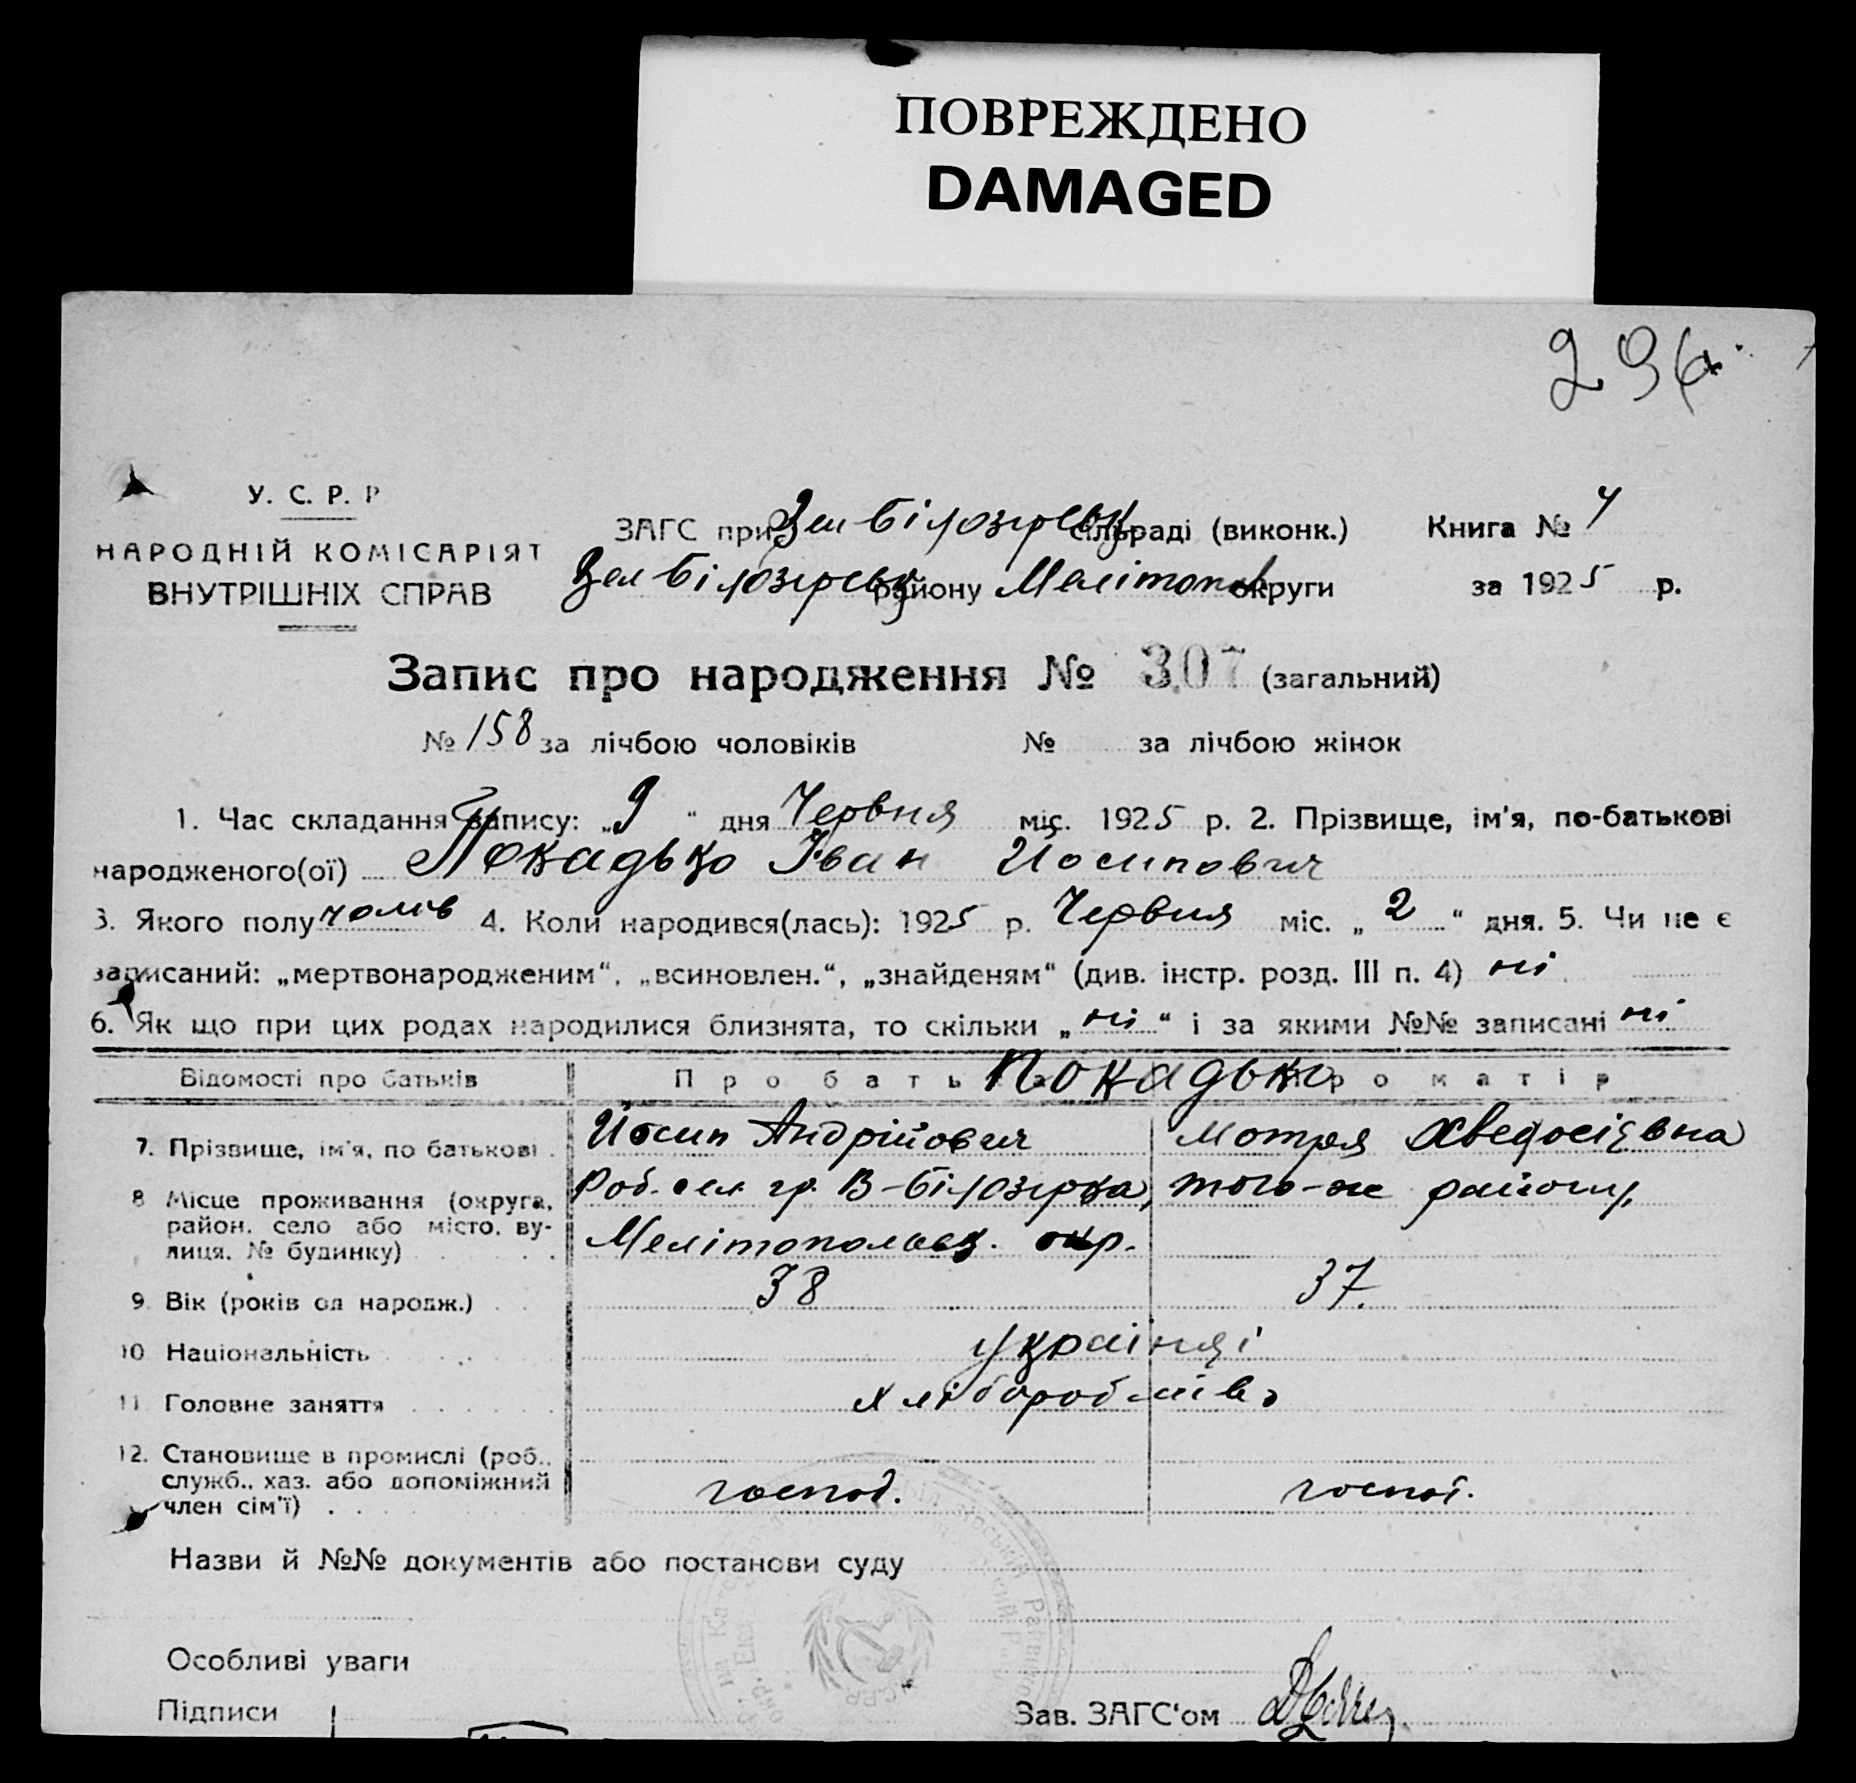 ПОВРЕЖДЕНО
DAMAGED
296
У. С. Р. Р
НАРОДНІЙ КОМІСАРІЯТ
ВНУТРІШНІХ СПРАВ
ЗАГС при Зел Білозірськ сільраді (виконк.) Книга №
Зел Білозірськ району Мелітопол округи за 1925 р.
Запис про народження № 307 (загальний)
№ 158 за лічбою чоловіків № за лічбою жінок
1. Час складання запису: „9“ дня Червня міс. 1925 р. 2. Прізвище, ім'я, по-батькові
народженого(ої) Покадько Іван Йосипович
3. Якого полу чолів 4. Коли народився(лась): 1925 р. Червня міс. „2“ дня. 5. Чи не є
записаний: „мертвонародженим“, „всиновлен.“, „знайденям“ (див. інстр. розд. III п. 4) ні
6. Як що при цих родах народилися близнята, то скільки „ні“ і за якими №№ записані ні
Відомості про батьків Про батька Покадько Про матір
7. Прізвище, ім'я, по батькові Йосип Андрійович Мотря Хведосіївна
8 Місце проживання (округа, район, село або місто, вулиця, № будинку) Роб. сел. гр. В-Білозірка, того-же району,
Мелітопольськ. окр.
9 Вік (років од народж.) 38 37.
10 Національність українці
11 Головне заняття хлібороб
12. Становище в промислі (роб., служб., хаз. або допоміжний член сім'ї) господ. госпот.
Назви й №№ документів або постанови суду
Особливі уваги
Підписи Зав. ЗАГС'ом